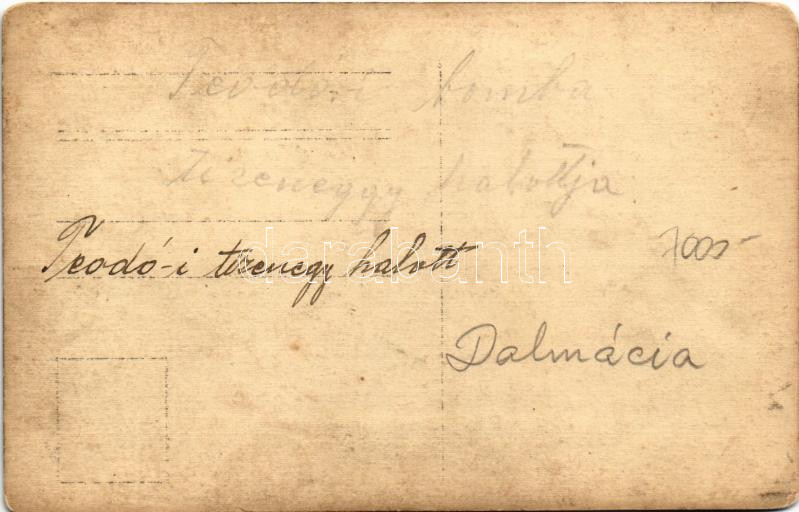 Teodó-i bomba
tizeneggy halottja
Teodó-i tizenegy halott
darabanth
7000-
Dalmácia